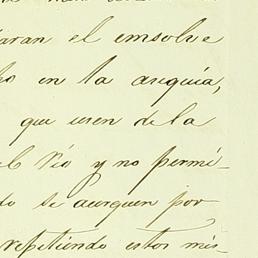 aran el
en la arquia,
que usen de la
el Rio y no permi-
do se acerquen por
repetiendo estos mis-